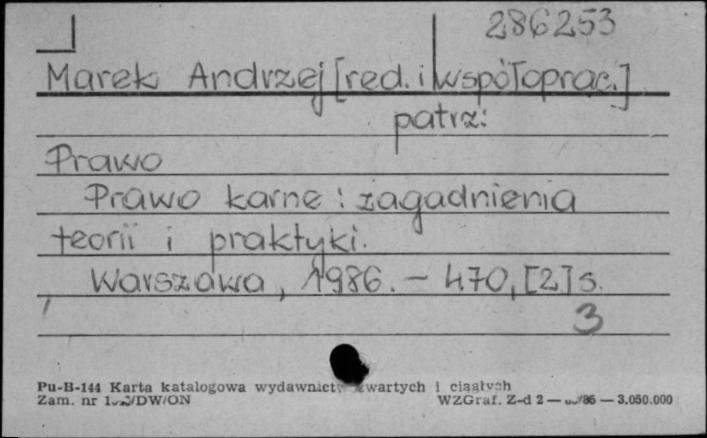 286253
Marek Andrzej [red. i współoprac.]
patrz:
Prawo
Prawo karne : zagadnienia
teorii i praktyki.
Warszawa, 1986. — 470, [2] s.
3
Pu-B-144 Karta katalogowa wydawnictw zwartych i ciągłych
Zam. nr /DW/ON WZGraf. Z-d 2 — /86 — 3.050.000